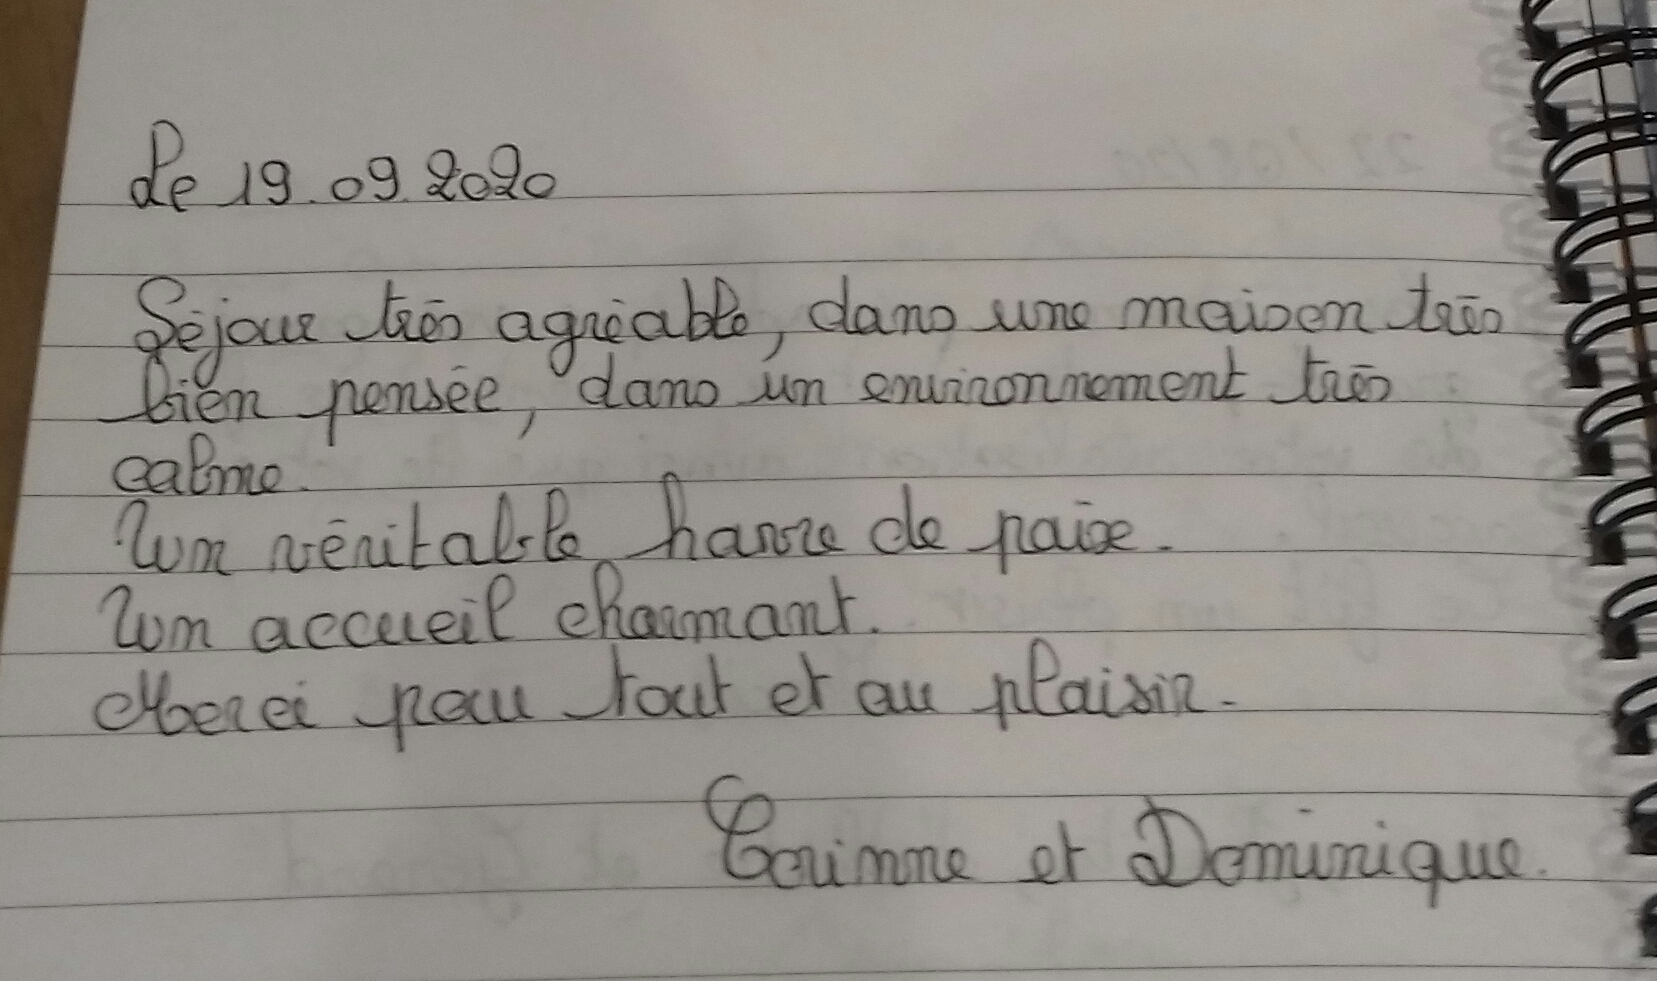 Le 19.09.2020
Séjour très agréable, dans une maison très
bien pensée, dans un environnement très
calme.
Un véritable havre de paix.
Un accueil charmant.
Merci pour tout et au plaisir.
Corinne et Dominique.